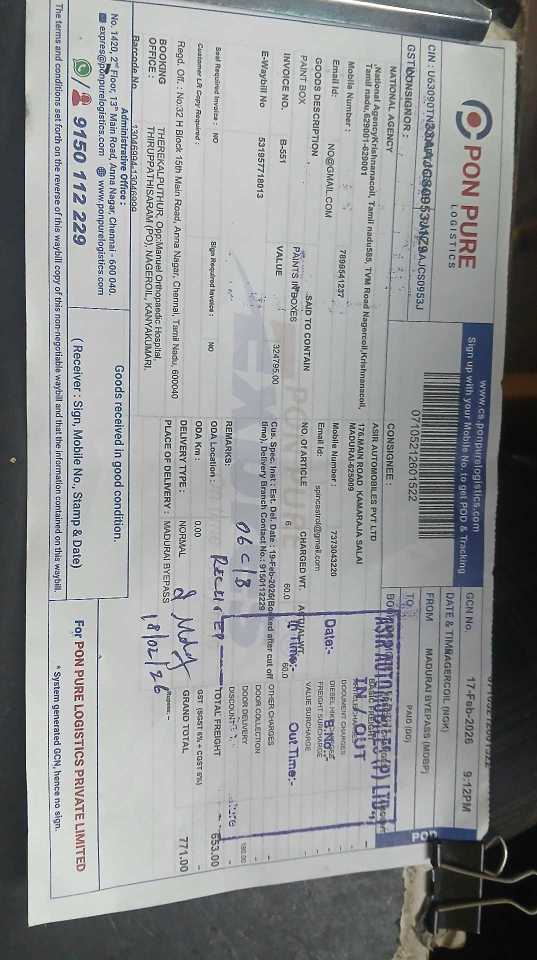 PON PURE
LOGISTICS
www.cs.ponpurelogistics.com
Sign up with your Mobile No. to get POD & Tracking
07105212601522
GCN No. 07105212601522
DATE & TIME 17-Feb-2026 9:12PM
FROM NAGERCOIL (NGK)
TO : MADURAI BYEPASS (MDBP)
PAID (DD)
POD
CONSIGNOR :
NATIONAL AGENCY
National Agency/Krishnanacoil, Tamil nadu585, TVM Road Nagercoil,Krishnanacoil,
Tamil nadu,629001-629001
Mobile Number : 7899541237
Email Id : NO@GMAIL.COM
CONSIGNEE :
ASIR AUTOMOBILES PVT LTD
170,MAIN ROAD KAMARAJA SALAI
MADURAI-625009
Mobile Number : 7373043220
Email Id: spincastrol@gmail.com
GOODS DESCRIPTION
PAINT BOX
SAID TO CONTAIN
PAINTS IN BOXES
NO.OF ARTICLE 6
CHARGED WT. 60.0
ACTUAL WT. 60.0
INVOICE NO. B-551
VALUE 324795.00
E-Waybill No 531957718013
Cus. Spec. Inst : Est. Del. Date : 19-Feb-2026(Booked after cut off
time). Delivery Branch Contact No.: 9150112229
REMARKS:
06 C/B
Received
18/02/26
Seal Required Invoice : NO
Sign Required Invoice : NO
Customer LR Copy Required :
ODA Location :
ODA Km : 0.00
DELIVERY TYPE : NORMAL
PLACE OF DELIVERY : MADURAI BYEPASS
Regd. Off. : No:32 H Block 15th Main Road, Anna Nagar, Chennai, Tamil Nadu, 600040
BOOKING
OFFICE :
THEREKALPUTHUR, Opp:Manuel Orthopaedic Hospital,
THIRUPPATHISARAM (PO), NAGERCOIL, KANYAKUMARI,
Barcode No 13046994-13046999
DOCUMENT CHARGES
FREIGHT SURCHARGE
VALUE SURCHARGE
OTHER CHARGES
DOOR COLLECTION
DOOR DELIVERY
DISCOUNT
TOTAL FREIGHT 653.00
GST (SGST 9% + CGST 9%)
GRAND TOTAL 771.00
Rupees: -
IN / OUT
Date:-
In Time:-
Out Time:-
Administrative Office :
No. 1420, 2nd Floor, 13th Main Road, Anna Nagar, Chennai - 600 040.
expres@ponpurelogistics.com www.ponpurelogistics.com
9150 112 229
Goods received in good condition.
( Receiver : Sign, Mobile No., Stamp & Date)
For PON PURE LOGISTICS PRIVATE LIMITED
* System generated GCN, hence no sign.
The terms and conditions set forth on the reverse of this waybill copy of this non-negotiable waybill and that the information contained on this waybill.